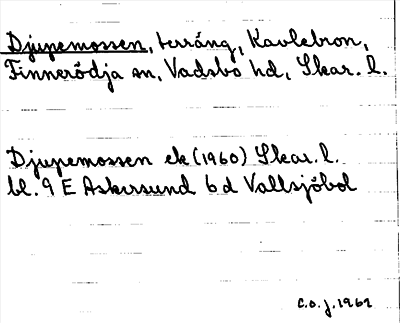 Djupemossen, terräng, Kavlebron,
Finnerödja sn, Vadsbo hd, Skar. l.
Djupemossen ek (1960) Skar. l.
bl. 9 E Askersund 6 d Vallsjöbol
C.O.J. 1962